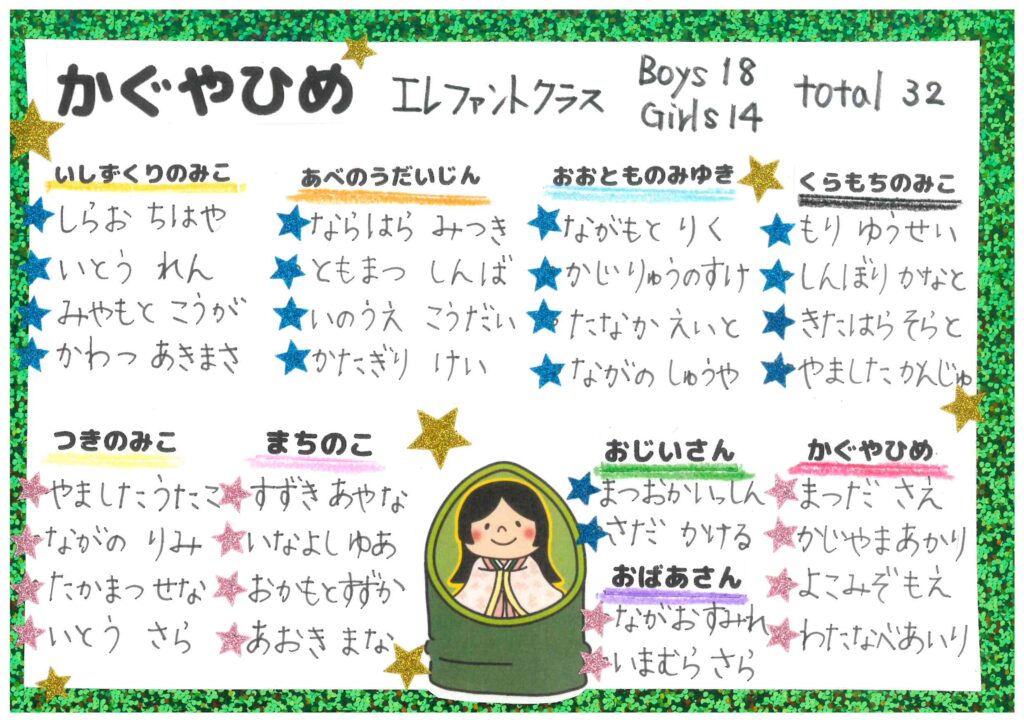 かぐやひめ エレファントクラス Boys 18 Girls 14 total 32
いしずくりのみこ
しらお ちはや
いとう れん
みやもと こうが
かわつ あきまさ
あべのうだいじん
ならはら みつき
ともまつ しんば
いのうえ こうだい
かたぎり けい
おおとものみゆき
ながもと りく
かじ りゅうのすけ
たなか えいと
ながの しゅうや
くらもちのみこ
もり ゆうせい
しんぼり かなと
きたはら そらと
やました かんじゅ
つきのみこ
やました うたこ
ながの りみ
たかまつ せな
いとう さら
まちのこ
すずき あやな
いなよし ゆあ
おかもと すずか
あおき まな
おじいさん
まつおか いっしん
さだ かける
おばあさん
ながお すみれ
いまむら さら
かぐやひめ
まつだ さえ
かじやま あかり
よこみぞ もえ
わたなべ あいり